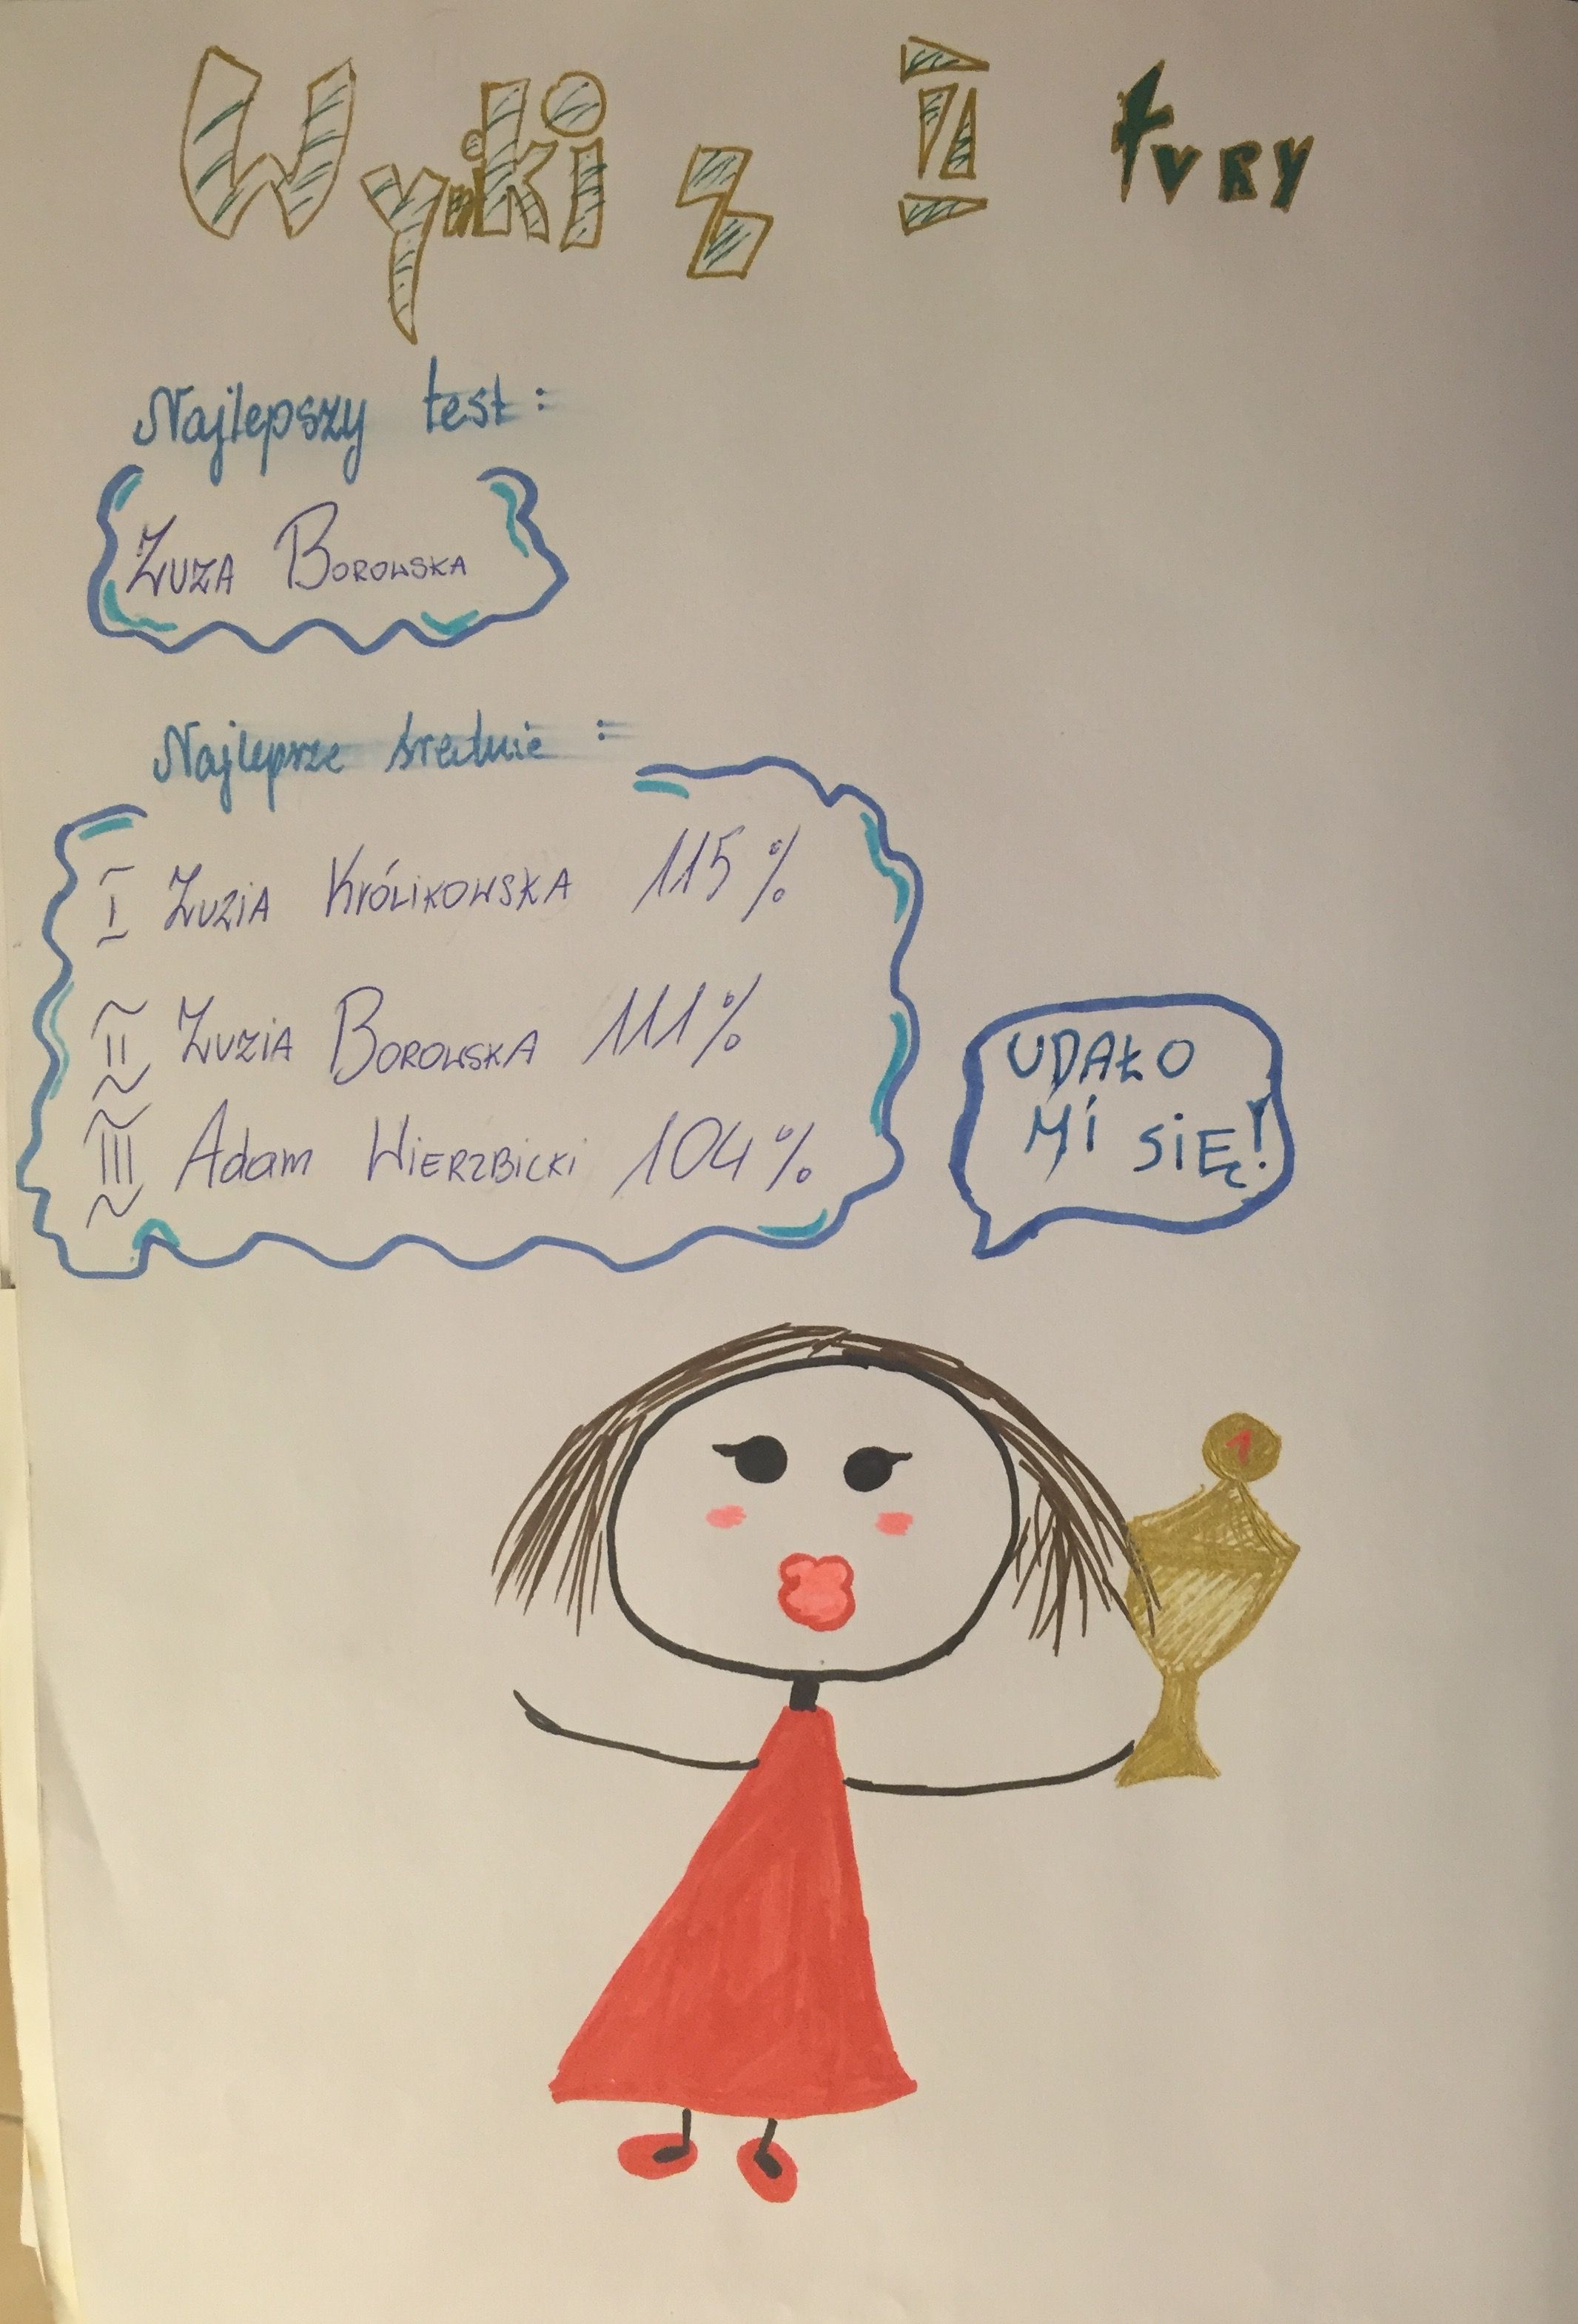 Wyniki z I tury
Najlepszy test:
Zuza Borowska
Najlepsze średnie:
I Zuzia Królikowska 115%
II Zuzia Borowska 111%
III Adam Wierzbicki 104%
UDAŁO
Mi SiĘ!
1